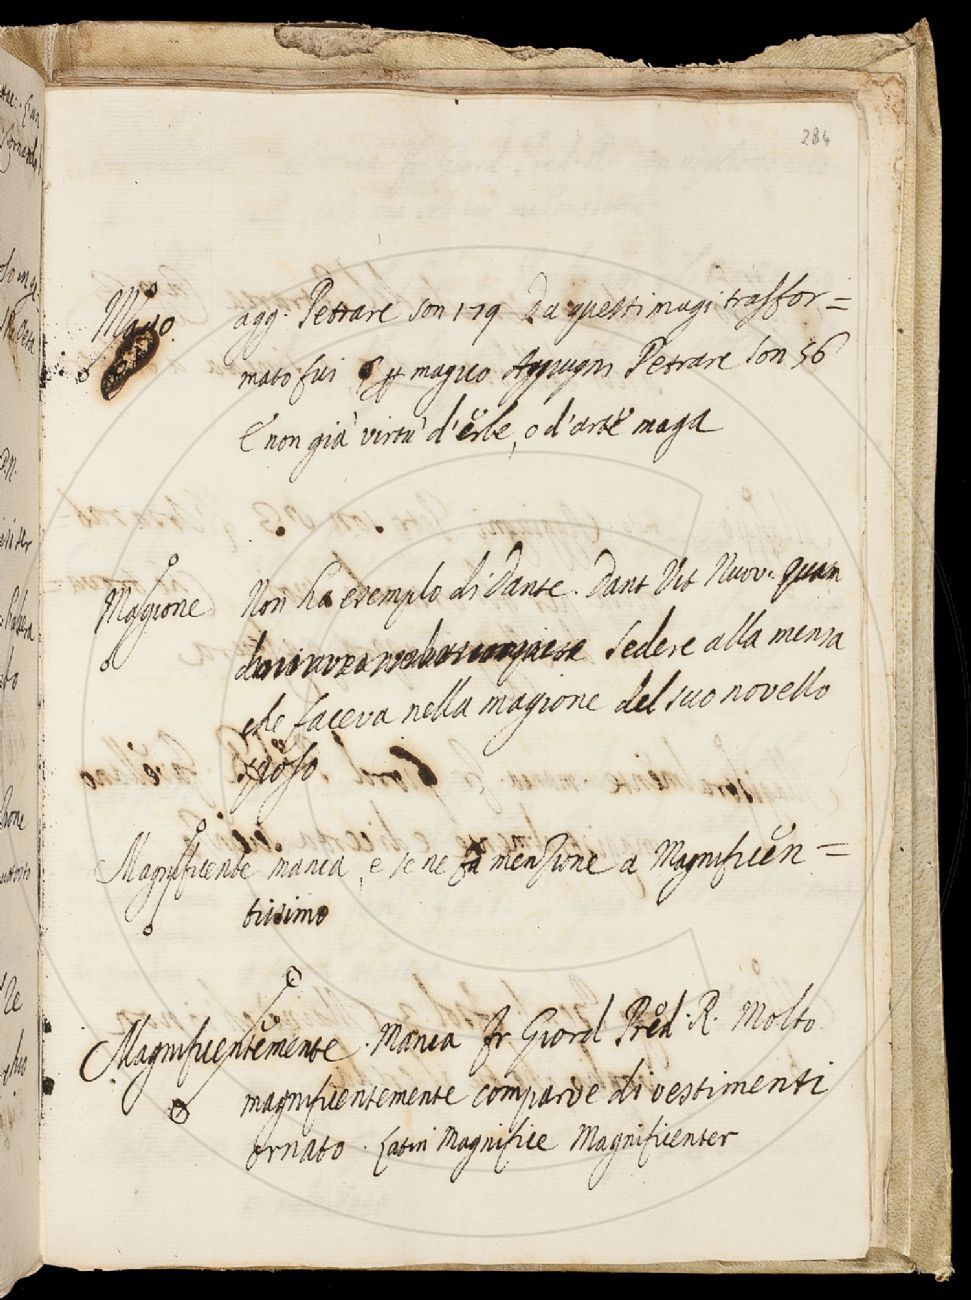 284
Mago. agg. Petrarc son 179 Da questi magi trasfor=
mato fui magico Aggiugni Petrarc Son 56
E non già virtù d'erbe, o d'arte maga
Magione Non ha exemplo di Dante. Dant Vit Nuov. quan
sedere alla mensa
che faceva nella magione del suo novello
sposo
Magnificente manca, e se ne fa menzione a Magnificen=
tissimo
Magnificentemente. Manca Fr Giord Pred. R. Molto
magnificentemente comparve di vestimenti
ornato. Latin Magnifice Magnificenter